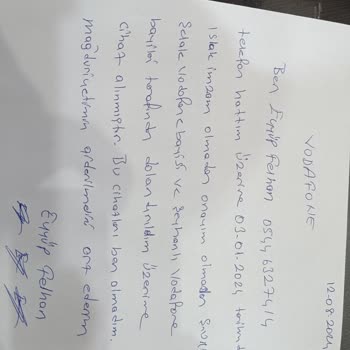 12-08-2024
VODAFONE
Ben Eyyüp Pelhan 0544 6327414
telefon hattım üzerine 03.01.2024
Islak imzam olmadan onayım olmadan
Şelale Vodafone bayisi ve Seyhanlı Vodafone
bayisi tarafından dolandırıldım üzerime
cihaz alınmıştır. Bu cihazları ben almadım.
mağduriyetimin giderilmesini arz ederim
Eyyüp Pelhan